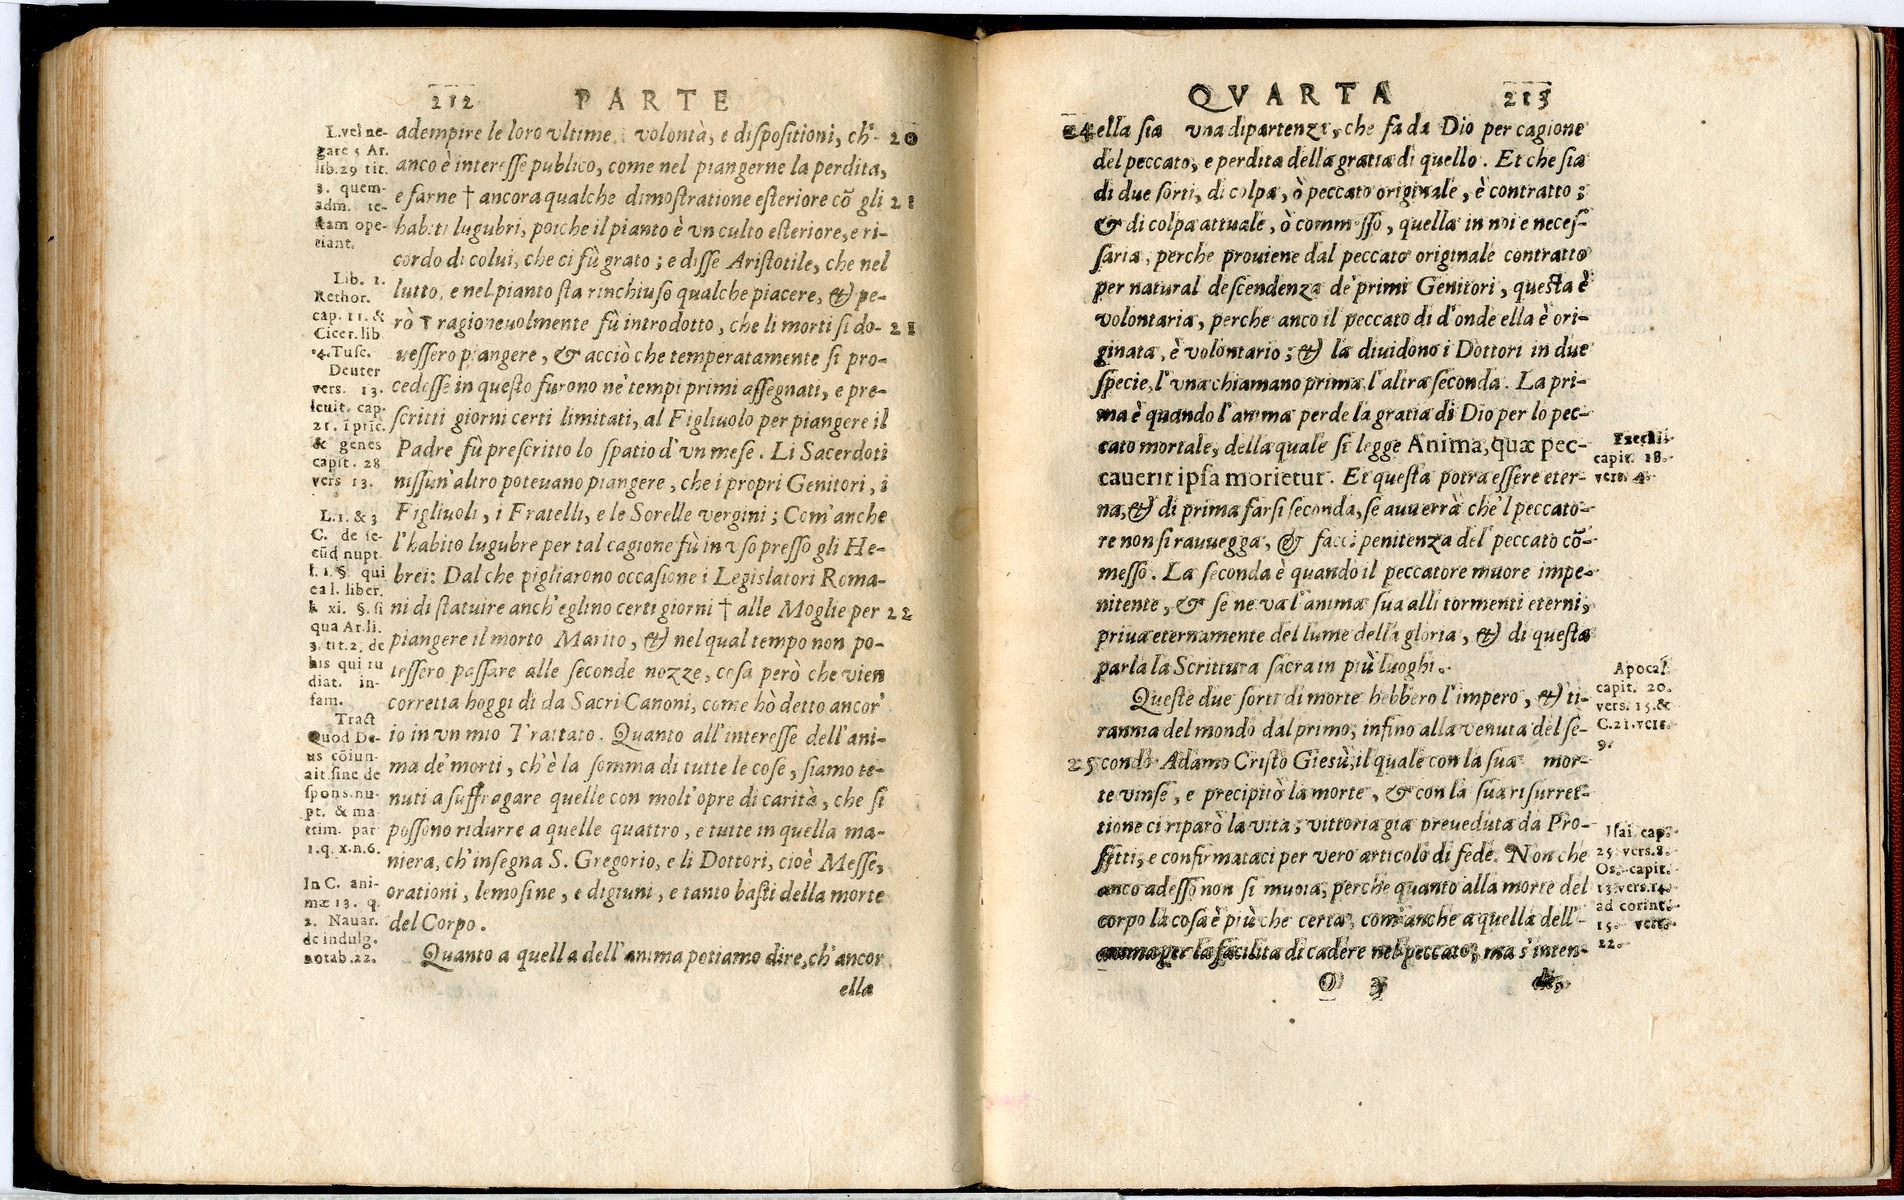 212 PARTE
adempire le loro vltime volontà, e dispositioni, ch'- 20
anco è interesse publico, come nel piangerne la perdita,
e farne † ancora qualche dimostratione esteriore cõ gli 21
habiti lugubri, poiche il pianto è vn culto esteriore, e ri-
cordo di colui, che ci fù grato; e disse Aristotile, che nel
lutto, e nel pianto sta rinchiuso qualche piacere, & pe-
rò † ragioneuolmente fù introdotto, che li morti si do- 21
uessero piangere, & acciò che temperatamente si pro-
cedesse in questo furono ne' tempi primi assegnati, e pre-
scritti giorni certi limitati, al Figliuolo per piangere il
Padre fù prescritto lo spatio d'vn mese. Li Sacerdoti
nissun'altro poteuano piangere, che i propri Genitori, i
Figliuoli, i Fratelli, e le Sorelle vergini; Com'anche
l'habito lugubre per tal cagione fù in vso presso gli He-
brei: Dal che pigliarono occasione i Legislatori Roma-
ni di statuire anch'eglino certi giorni † alle Moglie per 22
piangere il morto Marito, & nel qual tempo non po-
tessero passare alle seconde nozze, cosa però che vien
corretta hoggi dì da Sacri Canoni, come hò detto ancor'
io in vn mio Trattato. Quanto all'interesse dell'ani-
ma de' morti, ch'è la somma di tutte le cose, siamo te-
nuti a suffragare quelle con molt'opre di carità, che si
possono ridurre a quelle quattro, e tutte in quella ma-
niera, ch'insegna S. Gregorio, e li Dottori, cioè Messe,
orationi, lemosine, e digiuni, e tanto basti della morte
del Corpo.
Quanto a quella dell'anima potiamo dire, ch'ancor
ella
L. vel ne-
gare 5 Ar.
lib.29 tit.
3. quem-
adm. te-
stam ope-
riant.
Lib. 1.
Rethor.
cap. 11. &
Cicer. lib
4. Tusc.
Deuter
vers. 13.
leuit. cap.
21. ĩ prĩc.
& genes
capit. 28
vers 13.
L. 1. & 3
C. de se-
cũd nupt.
l. 1. §. qui
ea l. liber.
l. xi. §. si
qua Ar. li.
3. tit. 2. de
his qui nu
diat. in-
fam.
Tract
Quod De-
us cõiun-
ait sine de
spons. nu-
pt. & ma
trim. par
1. q. x. n. 6.
In C. ani-
mæ 13. q.
2. Nauar.
de indulg.
notab. 22.
QVARTA 213
24 ella sia vna dipartenza, che fa da Dio per cagione
del peccato, e perdita della gratia di quello. Et che sia
di due sorti, di colpa, ò peccato originale, è contratto;
& di colpa attuale, ò commesso, quella in noi e neces-
saria, perche prouiene dal peccato originale contratto
per natural descendenza de' primi Genitori, questa è
volontaria, perche anco il peccato di d'onde ella è ori-
ginata, è volontario; & la diuidono i Dottori in due
specie, l'vna chiamano prima, l'altra seconda. La pri-
ma è quando l'amma perde la gratia di Dio per lo pec-
cato mortale, della quale si legge Anima, quæ pec-
cauerit ipsa morietur. Et questa potra essere eter-
na, & di prima farsi seconda, se auuerrà che'l peccato-
re non si rauuegga, & facci penitenza del peccato cõ-
messo. La seconda è quando il peccatore muore impe-
nitente, & se ne va l'anima sua alli tormenti eterni,
priua eternamente del lume della gloria, & di questa
parla la Scrittura sacra in più luoghi.
Queste due sorti di morte hebbero l'impero, & ti-
rannia del mondo dal primo, infino alla venuta del se-
25 condo Adamo Cristo Giesù, il quale con la sua mor-
te vinse, e precipitò la morte, & con la sua risurret-
tione ci riparò la vita; vittoria già preueduta da Pro-
fetti, e confirmataci per vero articolo di fede. Non che
anco adesso non si muoia, perche quanto alla morte del
corpo la cosa è più che certa, com'anche a quella dell'-
anima per la facilita di cadere nel peccato, ma s'inten-
O 3 de,
Ezechi-
capit. 18.
vers. 4.
Apocal.
capit. 20.
vers. 15. &
C. 21. vers.
9.
Isai. cap.
25. vers. 8.
Os. capit.
13. vers. 14.
ad corint.
15. vers.
22.